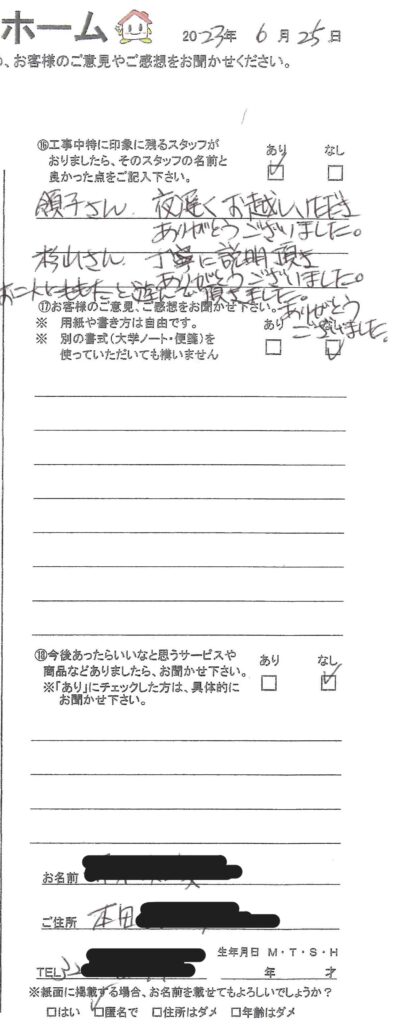 ホーム 2023年 6月 25日
、お客様のご意見やご感想をお聞かせください。
⑯工事中特に印象に残るスタッフが
おりましたら、そのスタッフの名前と
良かった点をご記入下さい。
あり なし
☑ □
領子さん 夜遅くお越し頂き
ありがとうございました。
杉山さん 丁寧に説明頂き
ありがとうございました。
お二人にももたと遊んで頂きました。
ありがとう
ございました。
⑰お客様のご意見、ご感想をお聞かせ下さい。
※ 用紙や書き方は自由です。
※ 別の書式(大学ノート・便箋)を
使っていただいても構いません
あり なし
□ ☑
⑱今後あったらいいなと思うサービスや
商品などありましたら、お聞かせ下さい。
※「あり」にチェックした方は、具体的に
お聞かせ下さい。
あり なし
□ ☑
お名前
ご住所 本田
TEL
生年月日 M・T・S・H
年 才
※紙面に掲載する場合、お名前を載せてもよろしいでしょうか?
□はい ☑匿名で □住所はダメ □年齢はダメ